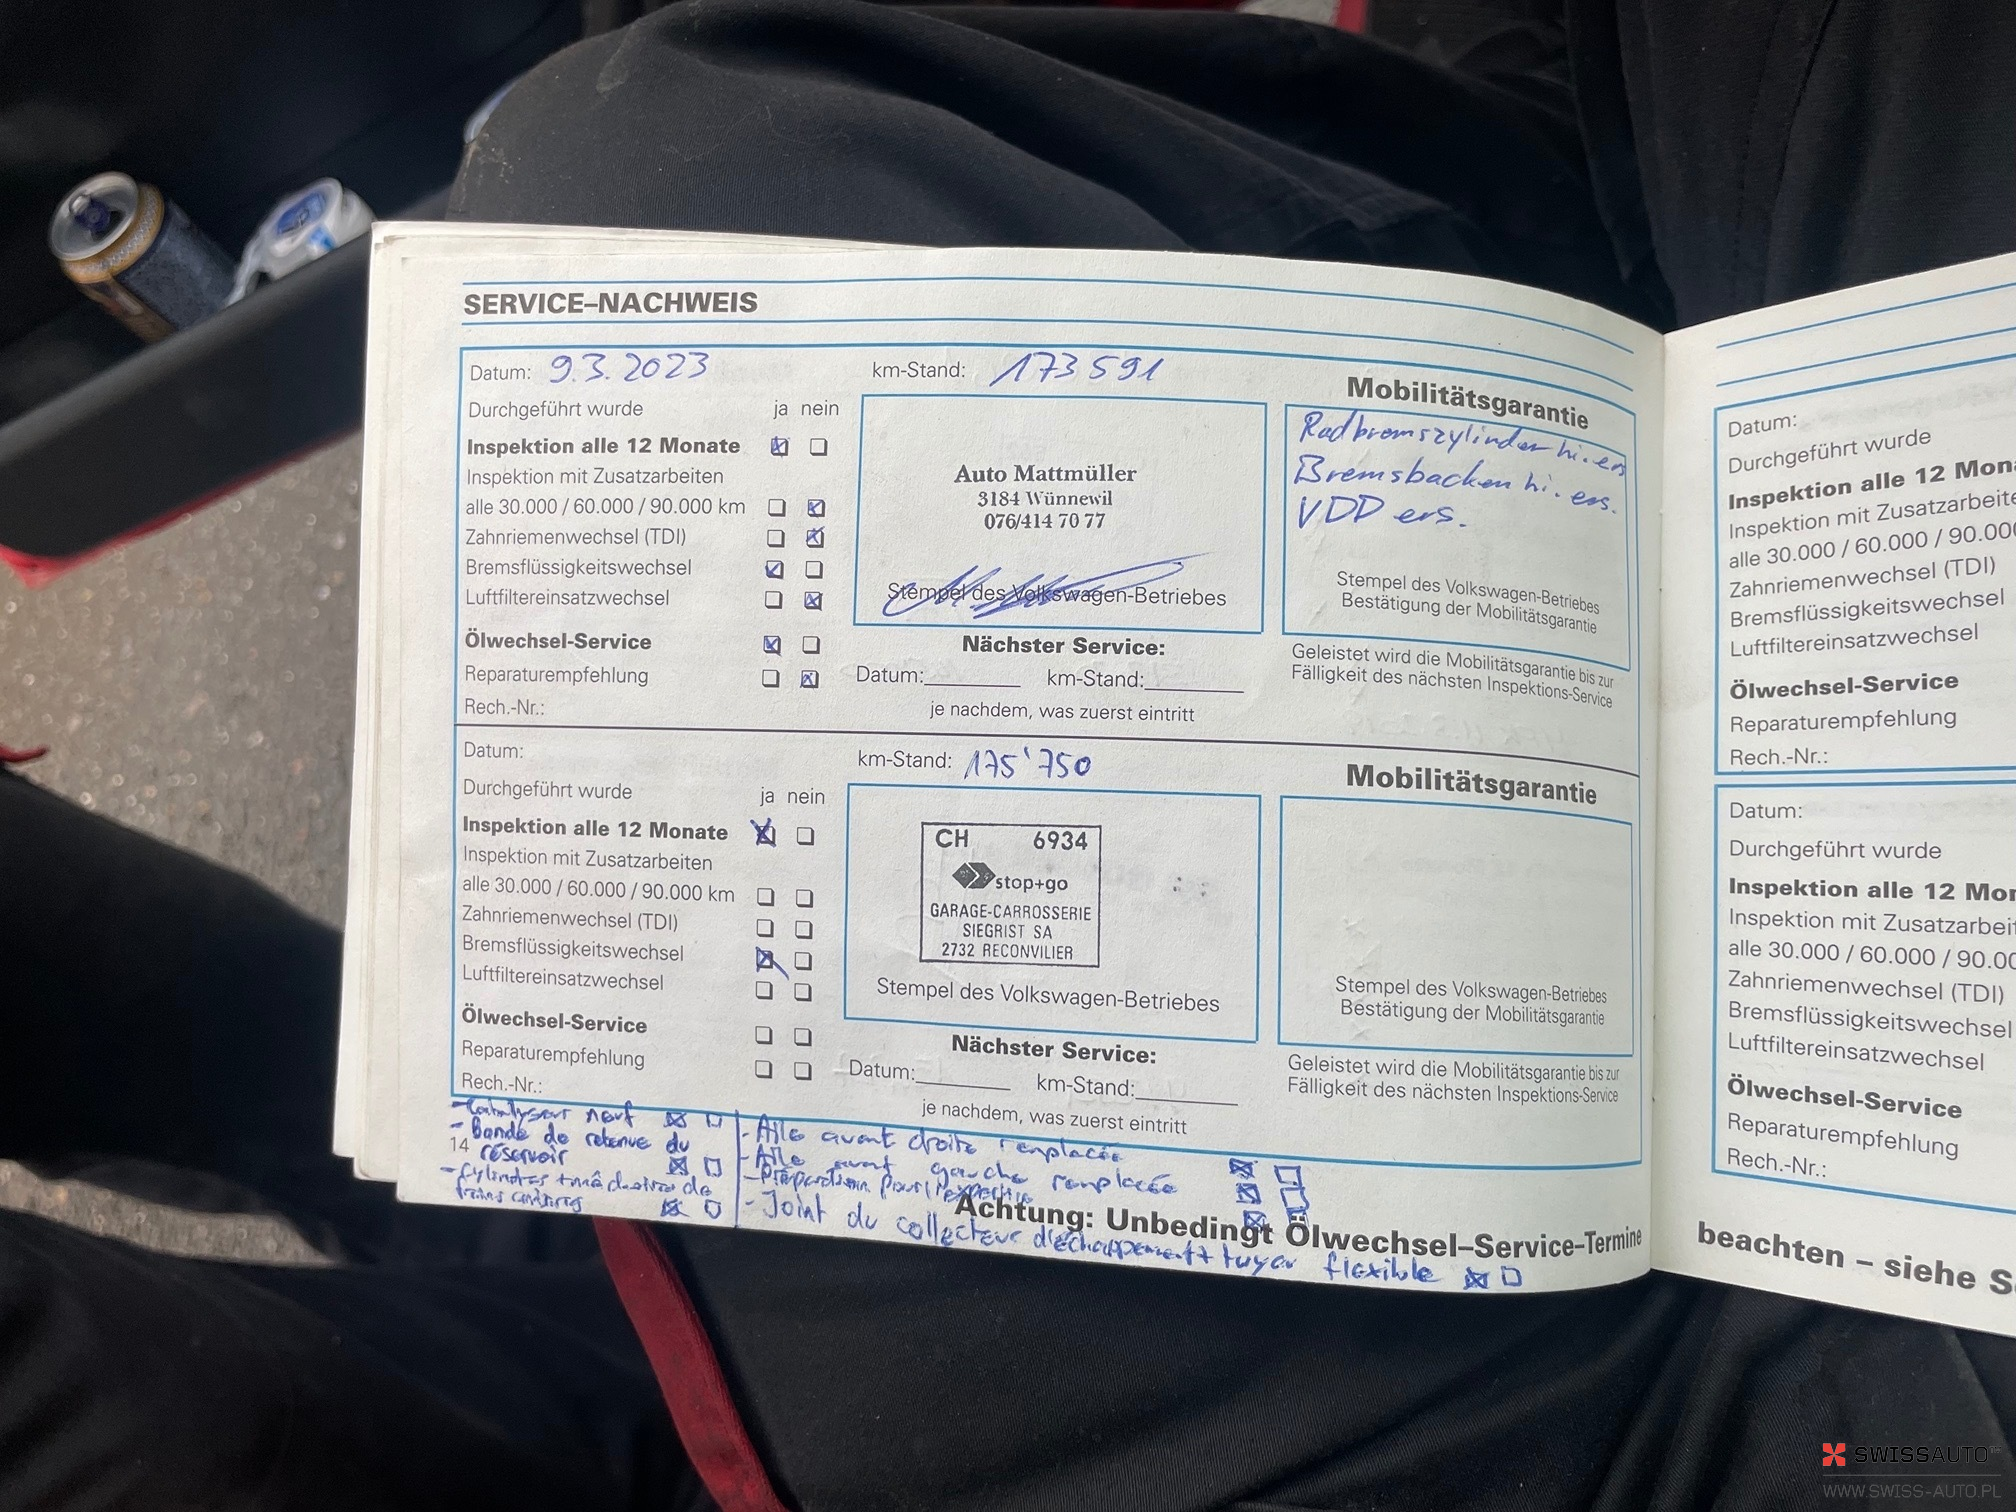 SERVICE–NACHWEIS
Datum: 9.3.2023
km-Stand: 173591
Durchgeführt wurde ja nein
Inspektion alle 12 Monate
Inspektion mit Zusatzarbeiten
alle 30.000 / 60.000 / 90.000 km
Zahnriemenwechsel (TDI)
Bremsflüssigkeitswechsel
Luftfiltereinsatzwechsel
Ölwechsel-Service
Reparaturempfehlung
Rech.-Nr.:
Auto Mattmüller
3184 Wünnewil
076/414 70 77
Stempel des Volkswagen-Betriebes
Nächster Service:
Datum: km-Stand:
je nachdem, was zuerst eintritt
Mobilitätsgarantie
Radbremszylinder hi. ers
Bremsbacken hi. ers.
VDD ers.
Stempel des Volkswagen-Betriebes
Bestätigung der Mobilitätsgarantie
Geleistet wird die Mobilitätsgarantie bis zur
Fälligkeit des nächsten Inspektions-Service
Datum:
km-Stand: 175'750
Durchgeführt wurde ja nein
Inspektion alle 12 Monate
Inspektion mit Zusatzarbeiten
alle 30.000 / 60.000 / 90.000 km
Zahnriemenwechsel (TDI)
Bremsflüssigkeitswechsel
Luftfiltereinsatzwechsel
Ölwechsel-Service
Reparaturempfehlung
Rech.-Nr.:
CH 6934
stop+go
GARAGE-CARROSSERIE
SIEGRIST SA
2732 RECONVILIER
Stempel des Volkswagen-Betriebes
Nächster Service:
Datum: km-Stand:
je nachdem, was zuerst eintritt
Mobilitätsgarantie
Stempel des Volkswagen-Betriebes
Bestätigung der Mobilitätsgarantie
Geleistet wird die Mobilitätsgarantie bis zur
Fälligkeit des nächsten Inspektions-Service
- Catalyseur neuf
- Bande de retenue du
réservoir
- Cylindres de
14
- Aile avant droite remplacée
- Aile avant gauche remplacée
- Préparation pour l'expertise
- Joint du collecteur d'échappement + tuyau flexible
Achtung: Unbedingt Ölwechsel–Service–Termine
Datum:
Durchgeführt wurde
Inspektion alle 12 Mona
Inspektion mit Zusatzarbeite
alle 30.000 / 60.000 / 90.00
Zahnriemenwechsel (TDI)
Bremsflüssigkeitswechsel
Luftfiltereinsatzwechsel
Ölwechsel-Service
Reparaturempfehlung
Rech.-Nr.:
Datum:
Durchgeführt wurde
Inspektion alle 12 Mon
Inspektion mit Zusatzarbeit
alle 30.000 / 60.000 / 90.00
Zahnriemenwechsel (TDI)
Bremsflüssigkeitswechsel
Luftfiltereinsatzwechsel
Ölwechsel-Service
Reparaturempfehlung
Rech.-Nr.:
beachten – siehe S
SWISSAUTO
WWW.SWISS-AUTO.PL